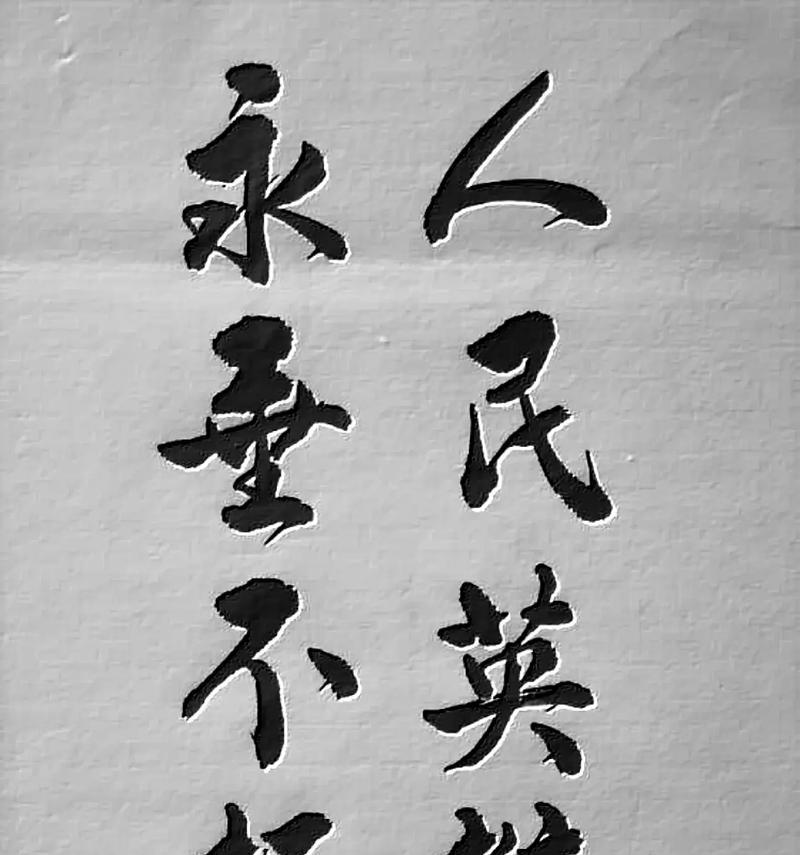 人民英
永垂不